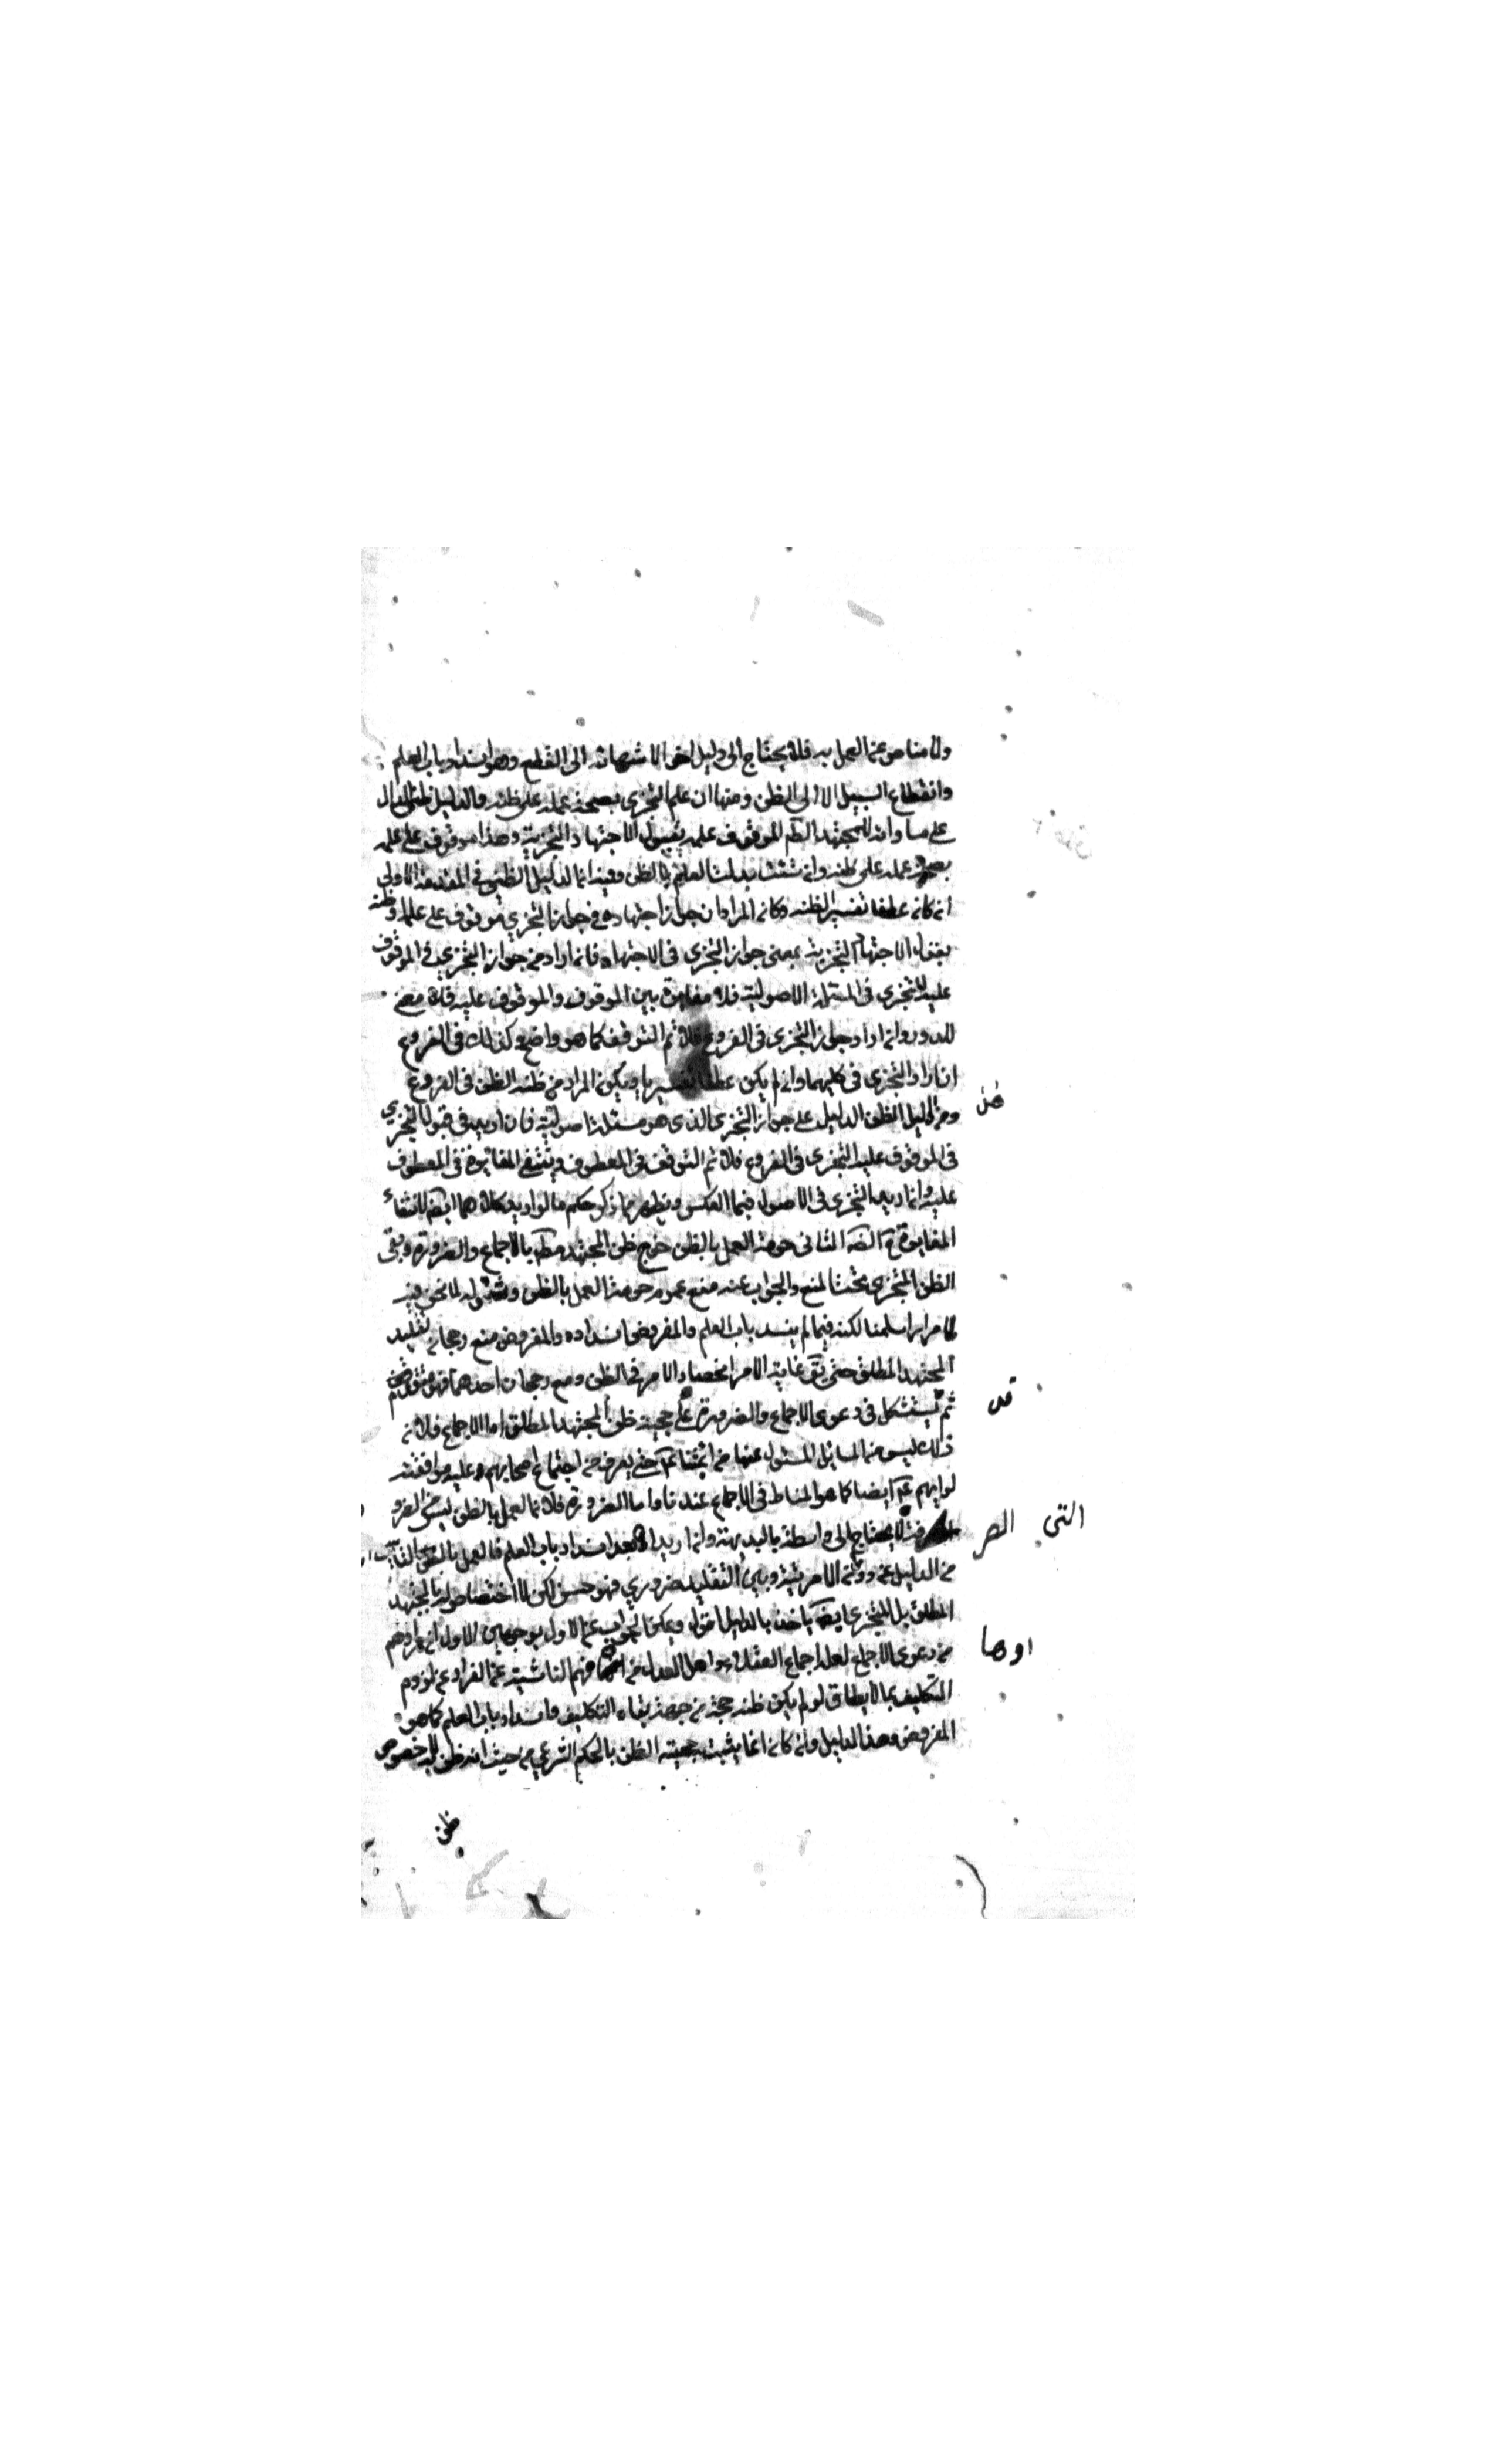 ولا مناص عن العمل به فلا يحتاج الى دليل اخر الا شهاته الى القطع وهو انسداد باب العلم
وانقطاع السبيل الا الى الظن ومنها ان علم المتجزي بصحة عمله على ظنه والدليل ظني الدال
على مساواته للمجتهد المط الموقوف علمه بقبول الاجتهاد التجزية وهذا موقوف على علمه
بصحة عمله على ظنه وان شئت بدلت العلم بالظن وفيه ان الدليل الظني في المقدمة الاولى
ان كان عطفا تفسير الظنه وكان المراد ان جواز اجتهاده في جواز التجزي موقوف على علمه وظنه
بقبول الاجتهاد التجزية بمعنى جواز التجزي في الاجتهاد فان اراد من جواز التجزي في الموقوف
عليه التجزي في المسئلة الاصولية فلا مغايرة بين الموقوف والموقوف عليه فلا معنى
للدور وان اراد جواز التجزي في الفروع فلا ثم التوقف كما هو واضح وكذلك في الفروع
ان اراد التجزي في كليهما وان لم يكن عطفا تفسيريا ويكون المراد من ظنه الظن في الفروع
ومن الدليل الظن الدليل على جواز التجزي الذي هو مسئلة اصولية فان اريد في قبول التجزي
في الموقوف عليه التجزي في الفروع فلا ثم التوقف في المعطوف وينتفي المغايرة في المعطوف
عليه وان اريد التجزي في الاصول فبما العكس ويظهر مما ذكر حكم ما لو اريد كلاهما ايضا لانتفاء
المغايرة الثاني حرمة العمل بالظن خرج ظن المجتهد مط بالاجماع والضرورة وبقى
الظن المتجزي تحت المنع والجواب عنه منع عموم حرمة العمل بالظن وشموله لما نحن فيه
لما مر سلمنا لكنه فيما لم ينسد باب العلم والمفروض انسداده والمفروض منع رجحان تقليد
المجتهد المطلق حتى غاية الامر انحصار الامر في الظن ومع رجحان احدهما فهو متقدم
ثم يستشكل في دعوى الاجماع والضرورة على حجية ظن المجتهد المطلق اما الاجماع فلان
ذلك ليس من المسائل المسئول عنها من ائمتنا ع حتى يعرف من اجتماع اصحابهم عليه موافقته
لرايهم ع ايضا كما هو المناط في الاجماع عندنا واما الضرورة فلان العمل بالظن ليس من الضرو
لا يحتاج الى واسطة بالبديهة وان اريد انه بعد انسداد باب العلم فالعمل بالظن
من الدليل عند دوران الامر بينه وبين التقليد ضروري فهو حسن لكن لا اختصاص له بالمجتهد
المطلق بل المتجزي ايضا ياخذ بالدليل اقول ويمكن الجواب عن الاول بوجهين الاول ان مرادهم
من دعوى الاجماع لعله اجماع العقلاء واهل العدل من الناشية عن الفراد عن لزوم
التكليف بما لا يطاق لو لم يكن ظنه حجة من جهة بقاء التكليف وانسداد باب العلم كما هو
المفروض وهذا الدليل وان كان انما يثبت حجية الظن بالحكم الشرعي من حيث انه ظن لا لخصوص
ظن
قد
التي الضر
اوها